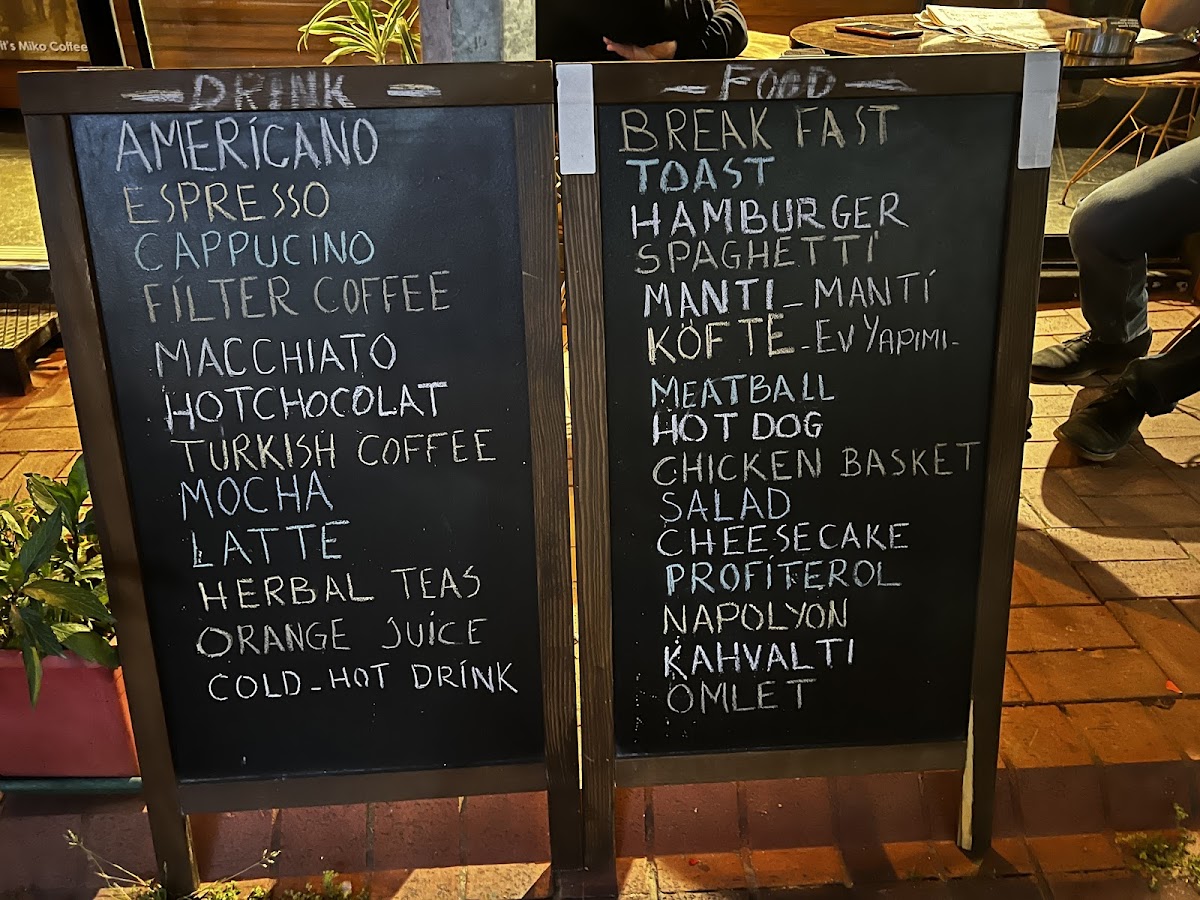 it's Miko Coffee
DRINK
AMERİCANO
ESPRESSO
CAPPUCINO
FİLTER COFFEE
MACCHIATO
HOTCHOCOLAT
TURKISH COFFEE
MOCHA
LATTE
HERBAL TEAS
ORANGE JUİCE
COLD-HOT DRİNK
FOOD
BREAK FAST
TOAST
HAMBURGER
SPAGHETTİ
MANTI-MANTİ
KÖFTE-EV YAPIMI-
MEATBALL
HOT DOG
CHICKEN BASKET
SALAD
CHEESECAKE
PROFİTEROL
NAPOLYON
KAHVALTI
OMLET